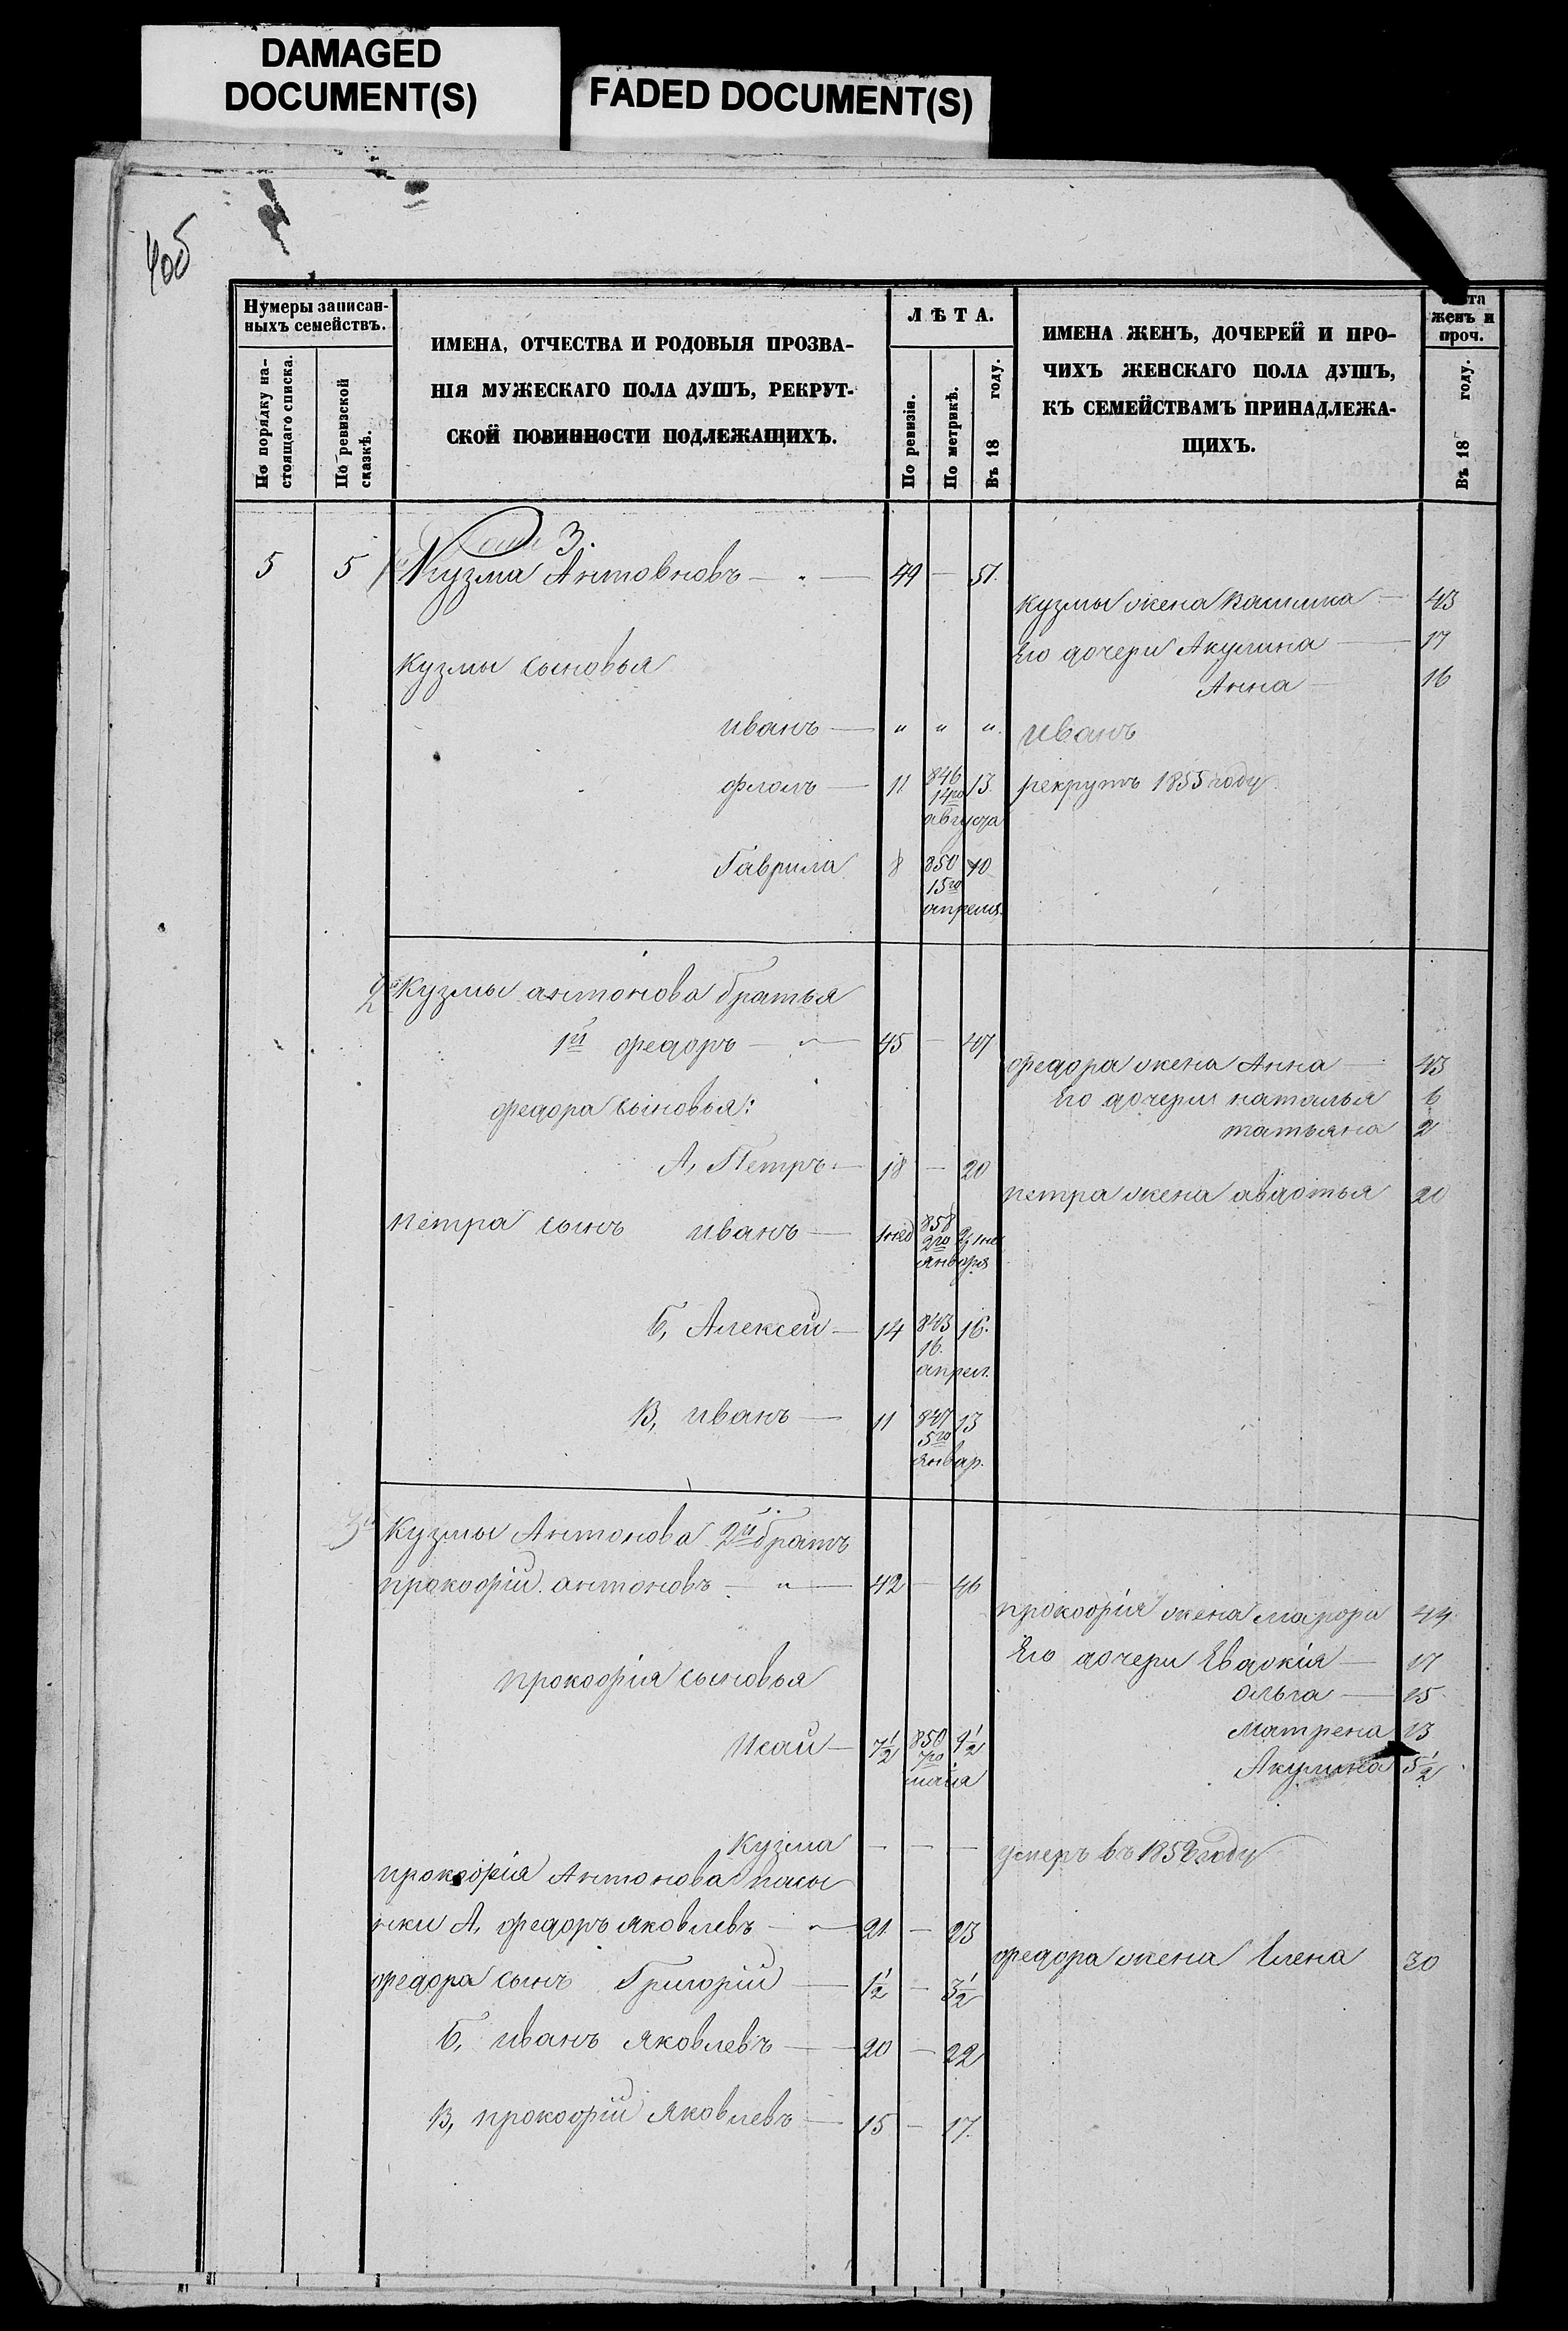 DAMAGED
DOCUMENT(S)
FADED DOCUMENT(S)
Нумеры записан-
ныхъ семействъ.
По порядку на-
стоящаго списка.
По ревизской
сказкѣ.
ИМЕНА, ОТЧЕСТВА И РОДОВЫЯ ПРОЗВА-
НІЯ МУЖЕСКАГО ПОЛА ДУШЪ, РЕКРУТ-
СКОЙ ПОВИННОСТИ ПОДЛЕЖАЩИХЪ.
ЛѢТА.
По ревизіи.
По метрикѣ.
Въ 18 году.
ИМЕНА ЖЕНЪ, ДОЧЕРЕЙ И ПРО-
ЧИХЪ ЖЕНСКАГО ПОЛА ДУШЪ,
КЪ СЕМЕЙСТВАМЪ ПРИНАДЛЕЖА-
ЩИХЪ.
женъ и
проч.
Въ 18 году.
3.
5 5 Кузма Антоновъ — 49 — 51.
Кузмы жена 43
Его дочери Акулина — 17
Кузмы сыновья
Анна — 16
иванъ — " " " иванъ
флолъ — 11 846 13 рекрутъ 1855 году
14го
августа
Гаврила 8 850 10
15го
апреля
2й Кузмы антонова братья
1й федоръ — " — 45 — 47
федора жена Анна — 43
федора сыновья:
Его дочери наталья 6
татьяна 2
А, Петръ — 18 — 20
петра жена авдотья 20
петра сынъ иванъ — 1нед 858 2
2го
января
Б, Алексей — 14 843 16.
16.
апрел.
В, иванъ — 11 847 13
5го
январ.
3й Кузмы Антонова 2й братъ
прокофiй антоновъ — " — 42 — 46
прокофiя жена марфа 44
Его дочери Евдокiя — 17
прокофiя сыновья
ольга — 15
Матрена 13
Исай — 7½ 850 9½
7го
маия
Акулина 5½
Кузма — — — умеръ въ 1858 году
прокофiя Антонова пасы
нки А, федоръ яковлевъ — " — 21 — 23
федора жена Елена 30
федора сынъ Григорiй — 1½ — 3½
Б, иванъ яковлевъ — 20 — 22
В, прокофiй яковлевъ — 15 — 17.